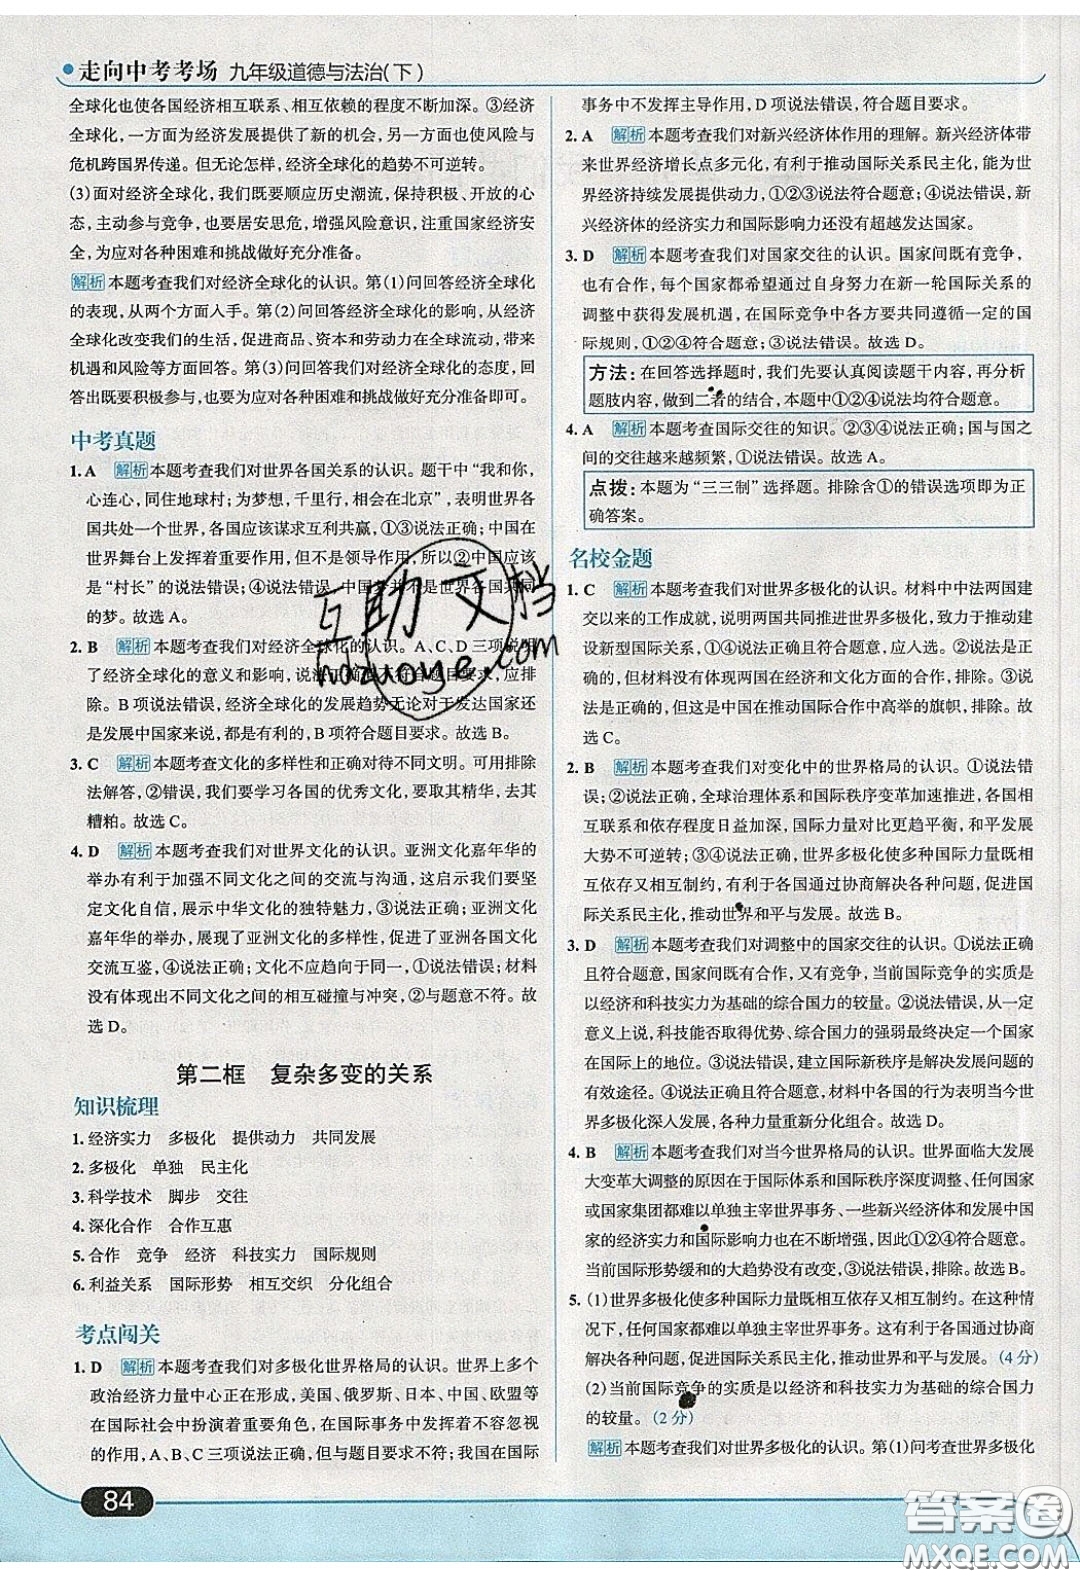 走向中考考场 九年级道德与法治(下)
全球化也使各国经济相互联系、相互依赖的程度不断加深。③经济
全球化,一方面为经济发展提供了新的机会,另一方面也使风险与
危机跨国界传递。但无论怎样,经济全球化的趋势不可逆转。
(3)面对经济全球化,我们既要顺应历史潮流,保持积极、开放的心
态,主动参与竞争,也要居安思危,增强风险意识,注重国家经济安
全,为应对各种困难和挑战做好充分准备。
解析 本题考查我们对经济全球化的认识。第(1)问回答经济全球化
的表现,从两个方面入手。第(2)问回答经济全球化的影响,从经济
全球化改变我们的生活,促进商品、资本和劳动力在全球流动,带来
机遇和风险等方面回答。第(3)问回答我们对经济全球化的态度,回
答出既要积极参与,也要为应对各种困难和挑战做好充分准备即可。
中考真题
1. A 解析 本题考查我们对世界各国关系的认识。题干中“我和你,
心连心,同住地球村;为梦想,千里行,相会在北京”,表明世界各
国共处一个世界,各国应该谋求互利共赢,①③说法正确;中国在
世界舞台上发挥着重要作用,但不是领导作用,所以②中国应该
是“村长”的说法错误;④说法错误,中国梦并不是世界各国共同
的梦。故选 A。
2. B 解析 本题考查我们对经济全球化的认识。A、C、D 三项说明
了经济全球化的意义和影响,说法正确但不符合题目要求,应排
除。B 项说法错误,经济全球化的发展趋势无论对于发达国家还
是发展中国家来说,都是有利的,B 项符合题目要求。故选 B。
3. C 解析 本题考查文化的多样性和正确对待不同文明。可用排除
法解答,②错误,我们要学习各国的优秀文化,要取其精华,去其
糟粕。故选 C。
4. D 解析 本题考查我们对世界文化的认识。亚洲文化嘉年华的
举办有利于加强不同文化之间的交流与沟通,这启示我们要坚
定文化自信,展示中华文化的独特魅力,③说法正确;亚洲文化
嘉年华的举办,展现了亚洲文化的多样性,促进了亚洲各国文化
交流互鉴,④说法正确;文化不应趋向于同一,①说法错误;材料
没有体现出不同文化之间的相互碰撞与冲突,②与题意不符。故
选 D。
第二框 复杂多变的关系
知识梳理
1. 经济实力 多极化 提供动力 共同发展
2. 多极化 单独 民主化
3. 科学技术 脚步 交往
4. 深化合作 合作互惠
5. 合作 竞争 经济 科技实力 国际规则
6. 利益关系 国际形势 相互交织 分化组合
考点闯关
1. D 解析 本题考查我们对多极化世界格局的认识。世界上多个
政治经济力量中心正在形成,美国、俄罗斯、日本、中国、欧盟等
在国际社会中扮演着重要角色,在国际事务中发挥着不容忽视
的作用,A、B、C 三项说法正确,但与题目要求不符;我国在国际
事务中不发挥主导作用,D 项说法错误,符合题目要求。
2. A 解析 本题考查我们对新兴经济体作用的理解。新兴经济体带
来世界经济增长点多元化,有利于推动国际关系民主化,能为世
界经济持续发展提供动力,①②③说法符合题意;④说法错误,新
兴经济体的经济实力和国际影响力还没有超越发达国家。
3. D 解析 本题考查我们对国家交往的认识。国家间既有竞争,
也有合作,每个国家都希望通过自身努力在新一轮国际关系的
调整中获得发展机遇,在国际竞争中各方要共同遵循一定的国
际规则,①②④符合题意;③说法错误。故选 D。
方法:在回答选择题时,我们先要认真阅读题干内容,再分析
题肢内容,做到二者的结合,本题中①②④说法均符合题意。
4. A 解析 本题考查国际交往的知识。②③④说法正确;国与国之
间的交往越来越频繁,①说法错误。故选 A。
点拨:本题为“三三制”选择题。排除含①的错误选项即为正
确答案。
名校金题
1. C 解析 本题考查我们对世界多极化的认识。材料中中法两国建
交以来的工作成就,说明两国共同推进世界多极化,致力于推动建
设新型国际关系,①④说法正确且符合题意,应入选。②说法是正
确的,但材料没有体现两国在经济和文化方面的合作,排除。③说
法是正确的,但这是中国在推动国际合作中高举的旗帜,排除。故
选 C。
2. B 解析 本题考查我们对变化中的世界格局的认识。①说法错
误;②说法正确,全球治理体系和国际秩序变革加速推进,各国相
互联系和依存程度日益加深,国际力量对比更趋平衡,和平发展
大势不可逆转;③④说法正确,世界多极化使多种国际力量既相
互依存又相互制约,有利于各国通过协商解决各种问题,促进国
际关系民主化,推动世界和平与发展。故选 B。
3. D 解析 本题考查我们对调整中的国家交往的认识。①说法正确
且符合题意,国家间既有合作,又有竞争,当前国际竞争的实质是
以经济和科技实力为基础的综合国力的较量。②说法错误,从一定
意义上说,科技能否取得优势、综合国力的强弱最终决定一个国家
在国际上的地位。③说法错误,建立国际新秩序是解决发展问题的
有效途径。④说法正确且符合题意,材料中各国的行为表明当今世
界多极化深入发展,各种力量重新分化组合。故选 D。
4. B 解析 本题考查我们对当今世界格局的认识。世界面临大发展
大变革大调整的原因在于国际体系和国际秩序深度调整、任何国家
或国家集团都难以单独主宰世界事务、一些新兴经济体和发展中国
家的经济实力和国际影响力也在不断增强,因此①②④符合题意。
当前国际形势缓和的大趋势没有改变,③说法错误,排除。故选 B。
5. (1)世界多极化使多种国际力量既相互依存又相互制约。在这种情
况下,任何国家都难以单独主宰世界事务。这有利于各国通过协商
解决各种问题,促进国际关系民主化,推动世界和平与发展。(4 分)
(2)当前国际竞争的实质是以经济和科技实力为基础的综合国力
的较量。(2 分)
解析 本题考查我们对世界多极化的认识。第(1)问考查世界多极化
84
互助文档
hdzuoye.com
答案圈
MXQE.COM